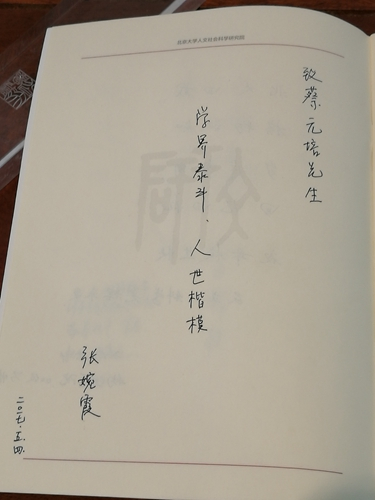 北京大学人文社会科学研究院
致蔡元培先生
学界泰斗．人世楷模
张婉霞
二〇一七.五.四.